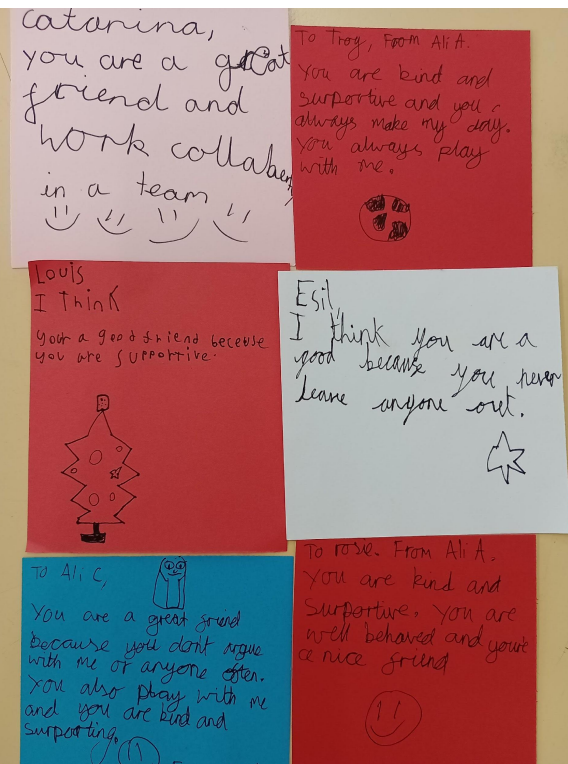 Catarina,
you are a great
friend and
work collabe
in a team
To Troy, From Ali A.
You are kind and
surportive and you
always make my day.
You always play
with me.
Louis
I Think
your a good friend beceuse
you are supportive.
Esil,
I think you are a
good because you never
leave anyone out.
To Ali C,
You are a great friend
because you don't argue
with me or anyone often.
You also play with me
and you are kind and
surporting.
To rosie. From Ali A.
You are kind and
Surportive. You are
well behaved and you're
a nice friend